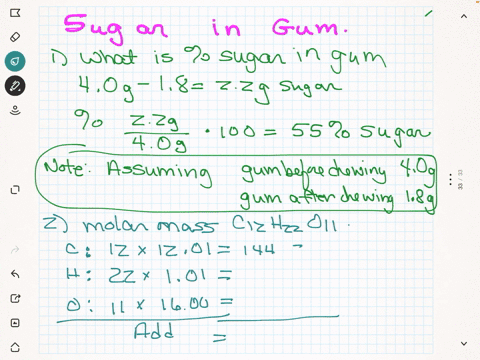 Sugar in Gum.
1) What is % sugar in gum
4.0g - 1.8 = 2.2g sugar
% 2.2g / 4.0g · 100 = 55% sugar
Note: Assuming gum before chewing 4.0g
gum after chewing 1.8g
2) molar mass C12H22O11.
C: 12 × 12.01 = 144
H: 22 × 1.01 =
O: 11 × 16.00 =
Add =